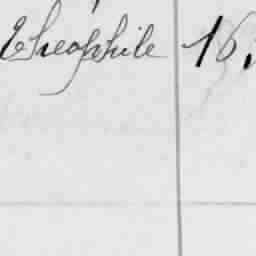 Théophile 16.